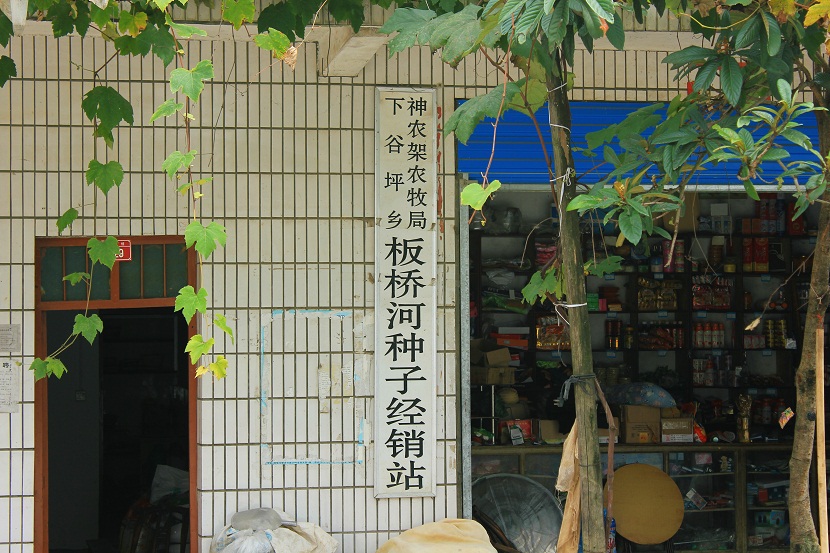 神农架农牧局
下谷坪乡
板桥河种子经销站